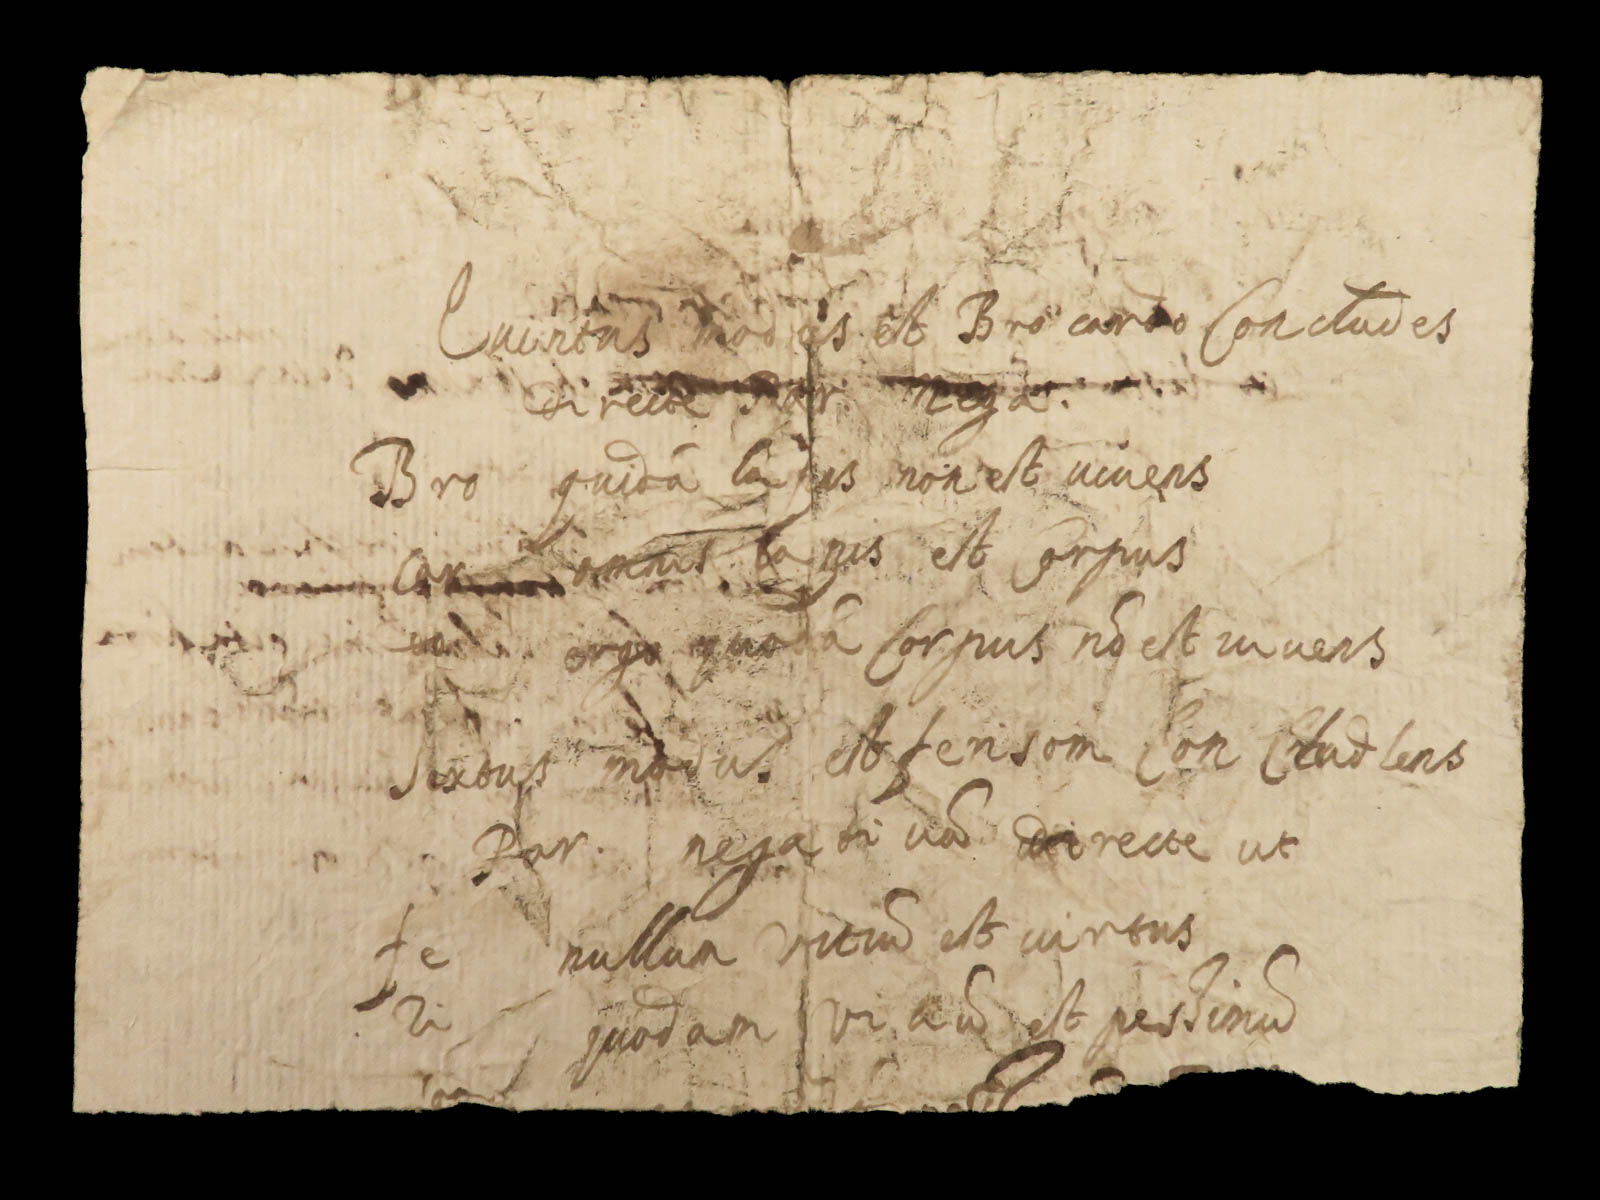 Quintus modus est Brocardo Concludes
directe Par nega.
Bro quidā lapis non est uiuens
Car omnis lapis est Corpus
do ergo quodā Corpus nō est uiuens
Sextus modus est ferisom Con Cludens
Par. negatiuū directe ut
fe nullum vitiū est uirtus
ri quodam viaū est pessimū